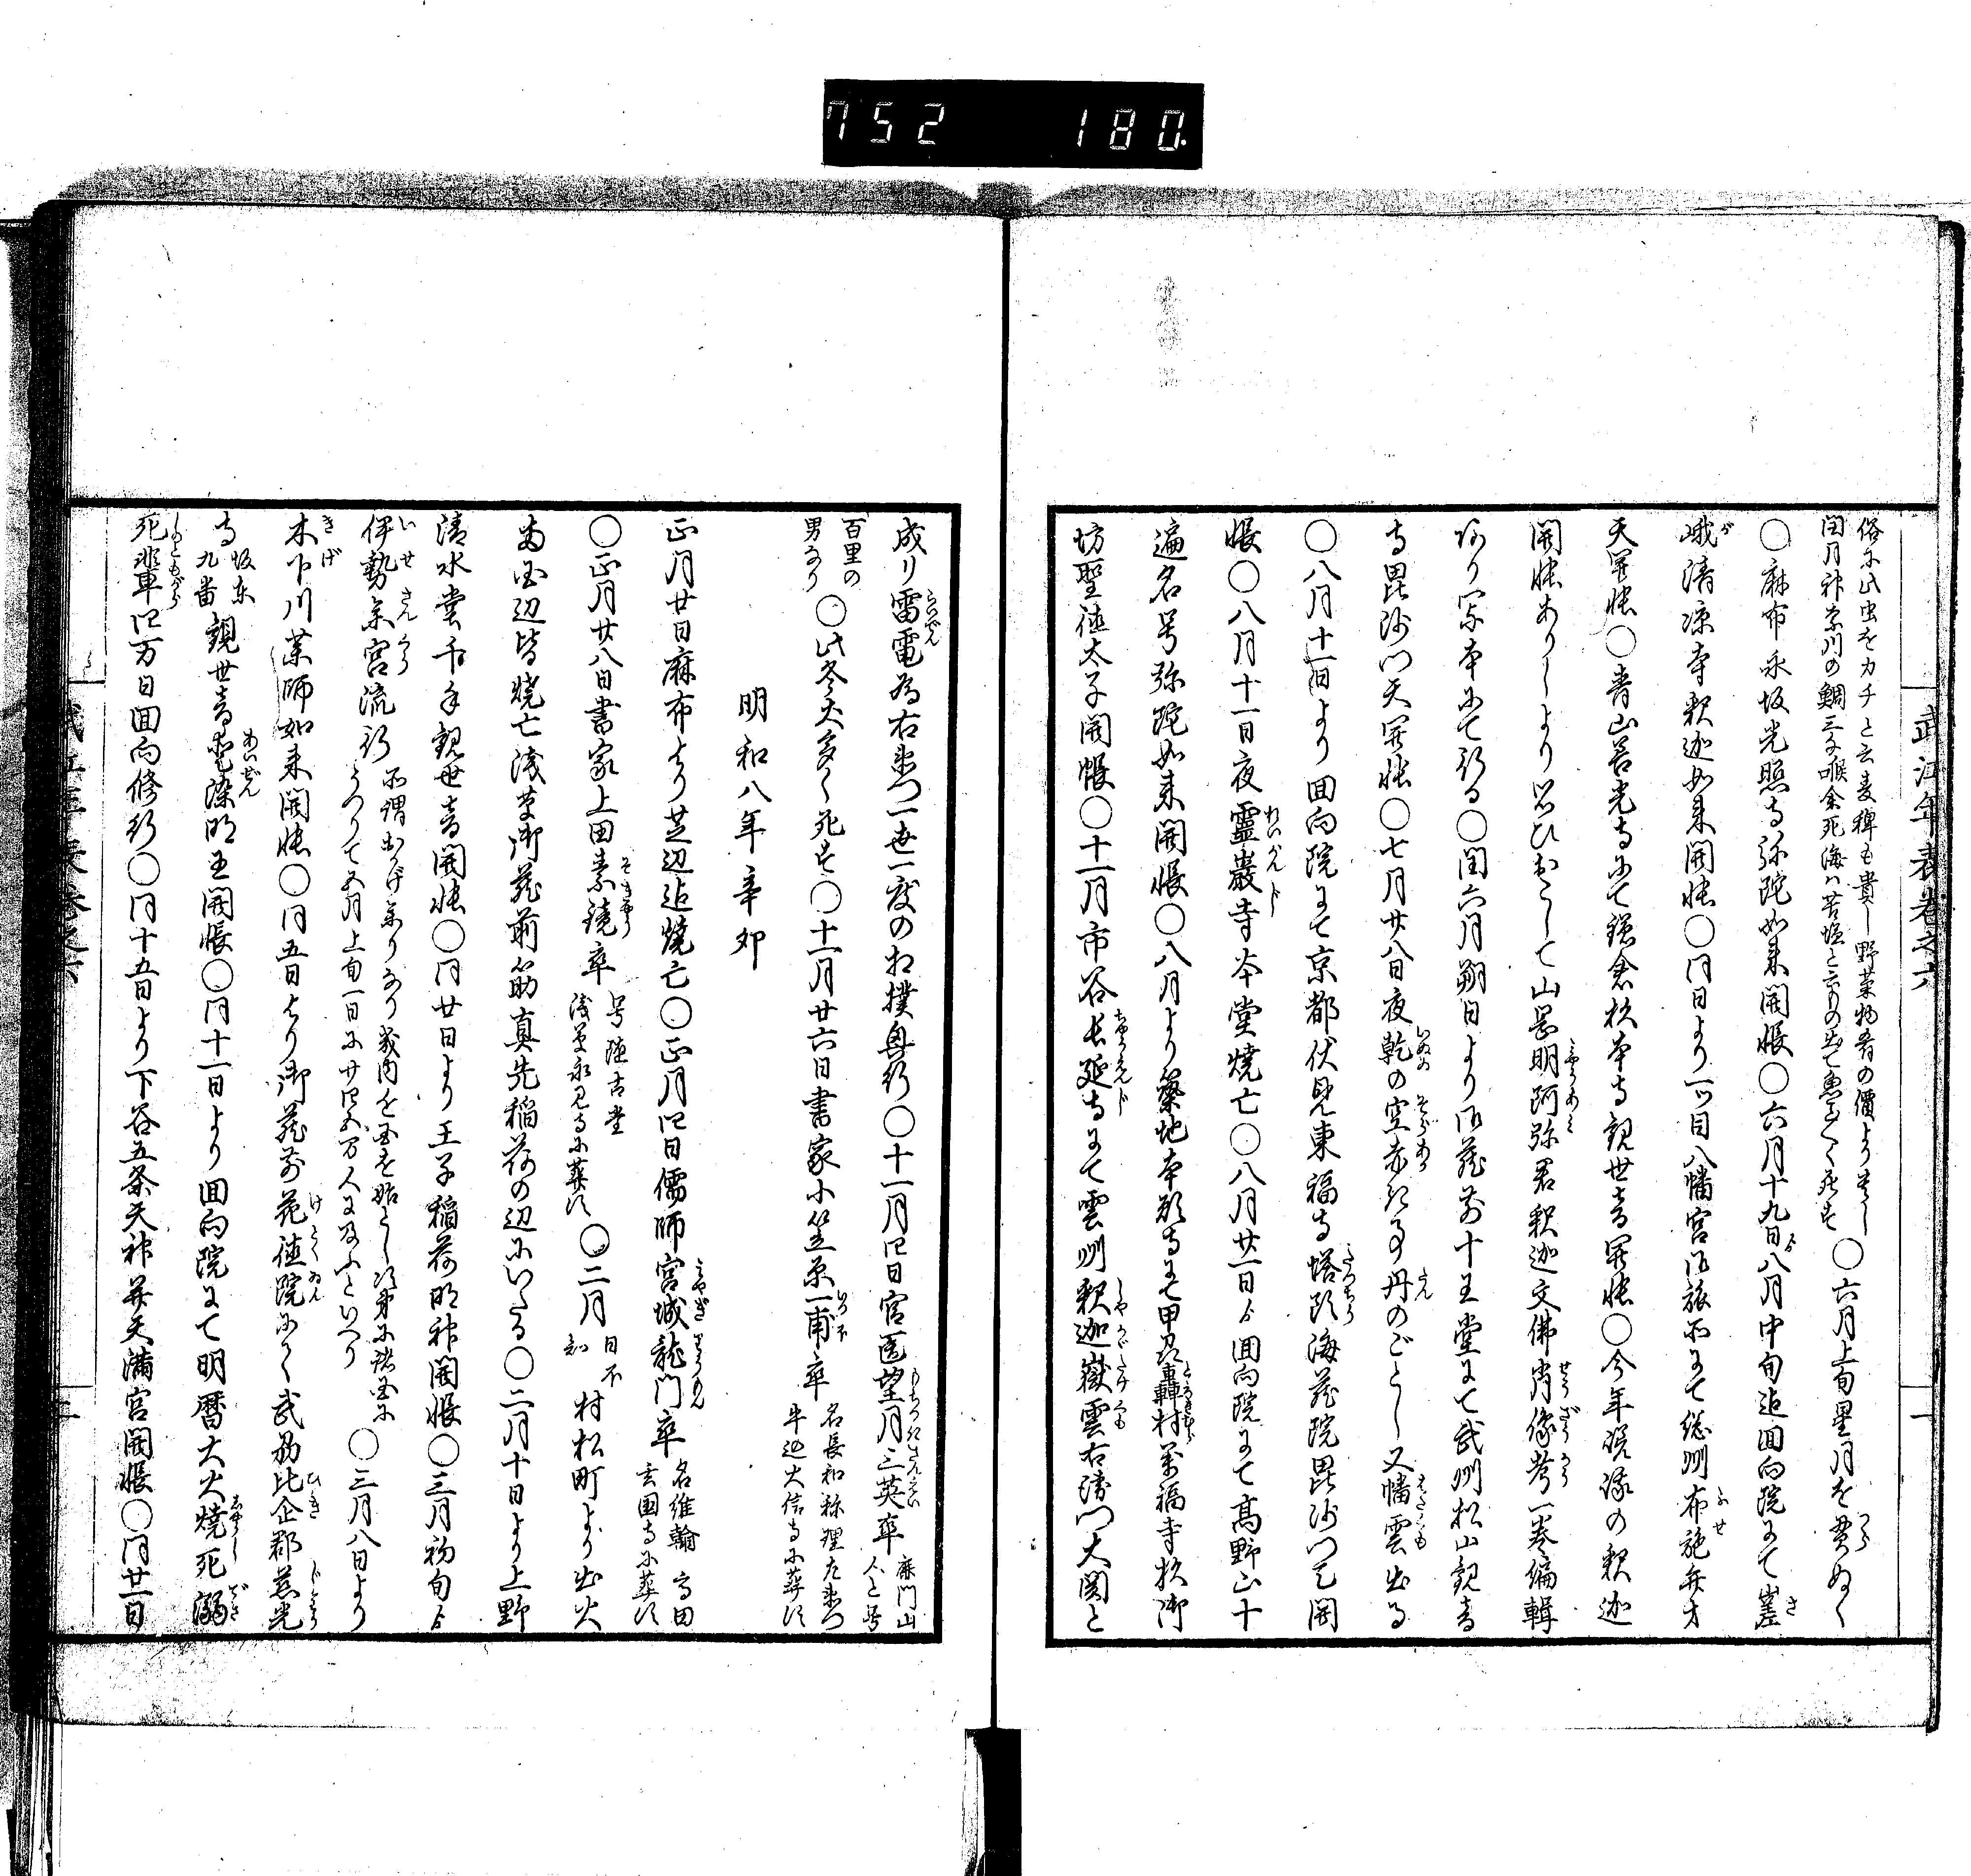 752 180
武江年表巻之六
俗に此虫をカチと云麦稗も貴し野菜物若の價よりも
閏月神奈川の鯛三千喉余死海は苦塩と云もの出て魚多く死す
○六月上旬星月を貫ぬく
○麻布永坂光照寺弥陀如来開帳○六月十九日より八月中旬迄回向院にて嵯
峨清凉寺釈迦如来開帳○同日より一ツ目八幡宮御旅所にて総州布施弁才
天開帳○青山善光寺にて鎌倉杉本寺観世音開帳○今年嵯峨の釈迦
開帳ありしより思ひおこして山岡明阿弥君釈迦文佛肖像考一巻編輯
ありて写本にて行る○閏六月朔日より御蔵前十王堂にて武州松山観音
寺毘沙門天開帳○七月廿八日夜乾の空赤き事丹のごとし又幡雲出る
○八月十一日より回向院にて京都伏見東福寺塔頭海蔵院毘沙門天開
帳○八月十一日夜霊巌寺本堂焼亡○八月廿一日より回向院にて高野山十
遍名号弥陀如来開帳○八月より築地本願寺にて甲州轟村万福寺杉御
坊聖徳太子開帳○十一月市谷長延寺にて雲州釈迦嶽雲右衛門大関と
成り雷電為右衛門一世一度の相撲興行○十一月四日官医望月三英卒 鹿門山
人と号
百里の
男なり
○此冬犬多く死す○十一月廿六日書家小笠原一甫卒 名長和称理左衛門
牛込大信寺に葬す
明和八年辛卯
正月廿日麻布より芝辺迄焼亡○正月四日儒師宮城龍門卒 名維翰 高田
玄国寺に葬す
○正月廿八日書家上田素鏡卒 号陸吉堂
浅草永見寺に葬す
○二月 日不
知
村松町より出火
両国辺皆焼亡浅草御蔵前筋真先稲荷の辺にいたる○二月十日より上野
清水堂千手観世音開帳○同廿日より王子稲荷明神開帳○三月初旬より
伊勢参宮流行 所謂おかげ参りなり畿内近国を始とし次第に諸国に
うつりて五月上旬一日に廿四五万人に及ふといへり
○三月八日より
木下川薬師如来開帳○同五日より御蔵前花徳院にて武州比企郡慈光
寺 坂東
九番
観世音愛染明王開帳○同十一日より回向院にて明暦大火焼死溺
死輩四万日回向修行○同十五日より下谷五条天神并天満宮開帳○同廿一日